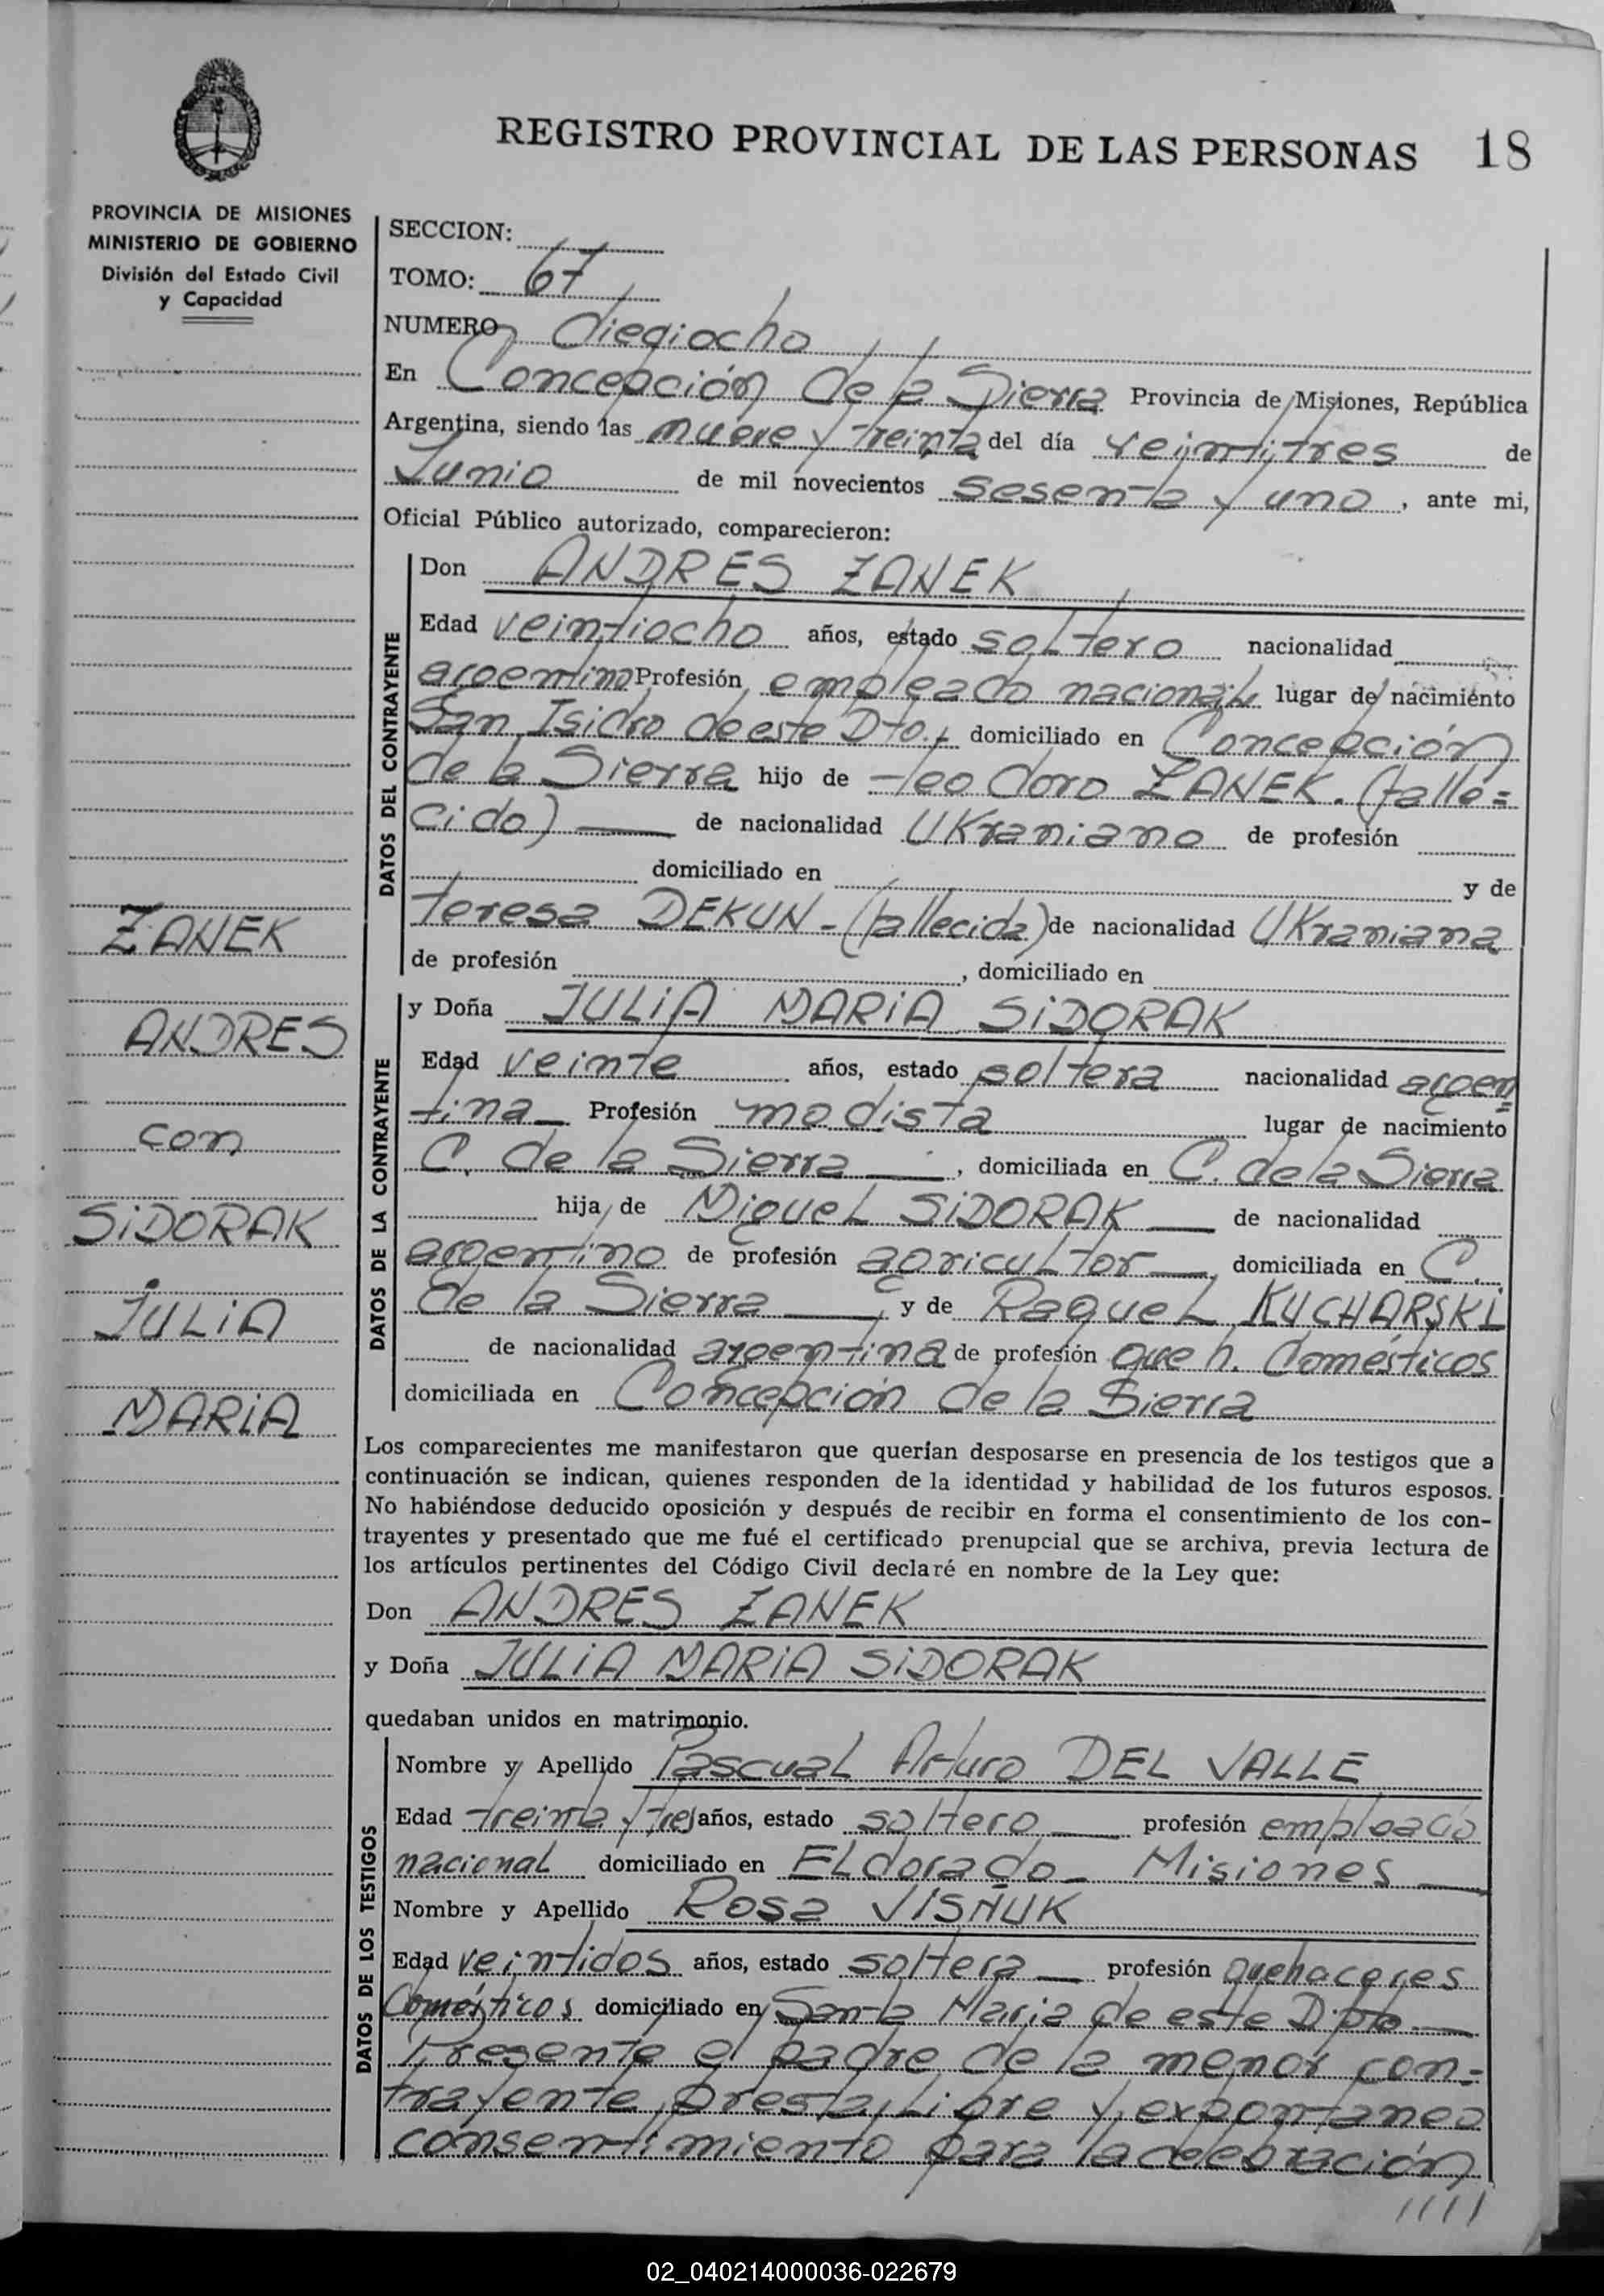 REGISTRO PROVINCIAL DE LAS PERSONAS 18
PROVINCIA DE MISIONES
MINISTERIO DE GOBIERNO
División del Estado Civil
y Capacidad
ZANEK
ANDRES
con
SIDORAK
JULIA
MARIA
SECCION:
TOMO: 67
NUMERO Diegiocho
En Concepción de la Sierra Provincia de Misiones, República
Argentina, siendo las nueve y treinta del día veintitres de
Junio de mil novecientos sesenta y uno, ante mi,
Oficial Público autorizado, comparecieron:
DATOS DEL CONTRAYENTE
Don ANDRES ZANEK
Edad veintiocho años, estado soltero nacionalidad
argentino Profesión empleado nacional lugar de nacimiento
San Isidro de este Dto. domiciliado en Concepción
de la Sierra hijo de Teodoro ZANEK. (falle=
cido) — de nacionalidad Ukraniano de profesión
domiciliado en y de
Teresa DEKUN - (fallecida) de nacionalidad Ukraniana
de profesión , domiciliado en
DATOS DE LA CONTRAYENTE
y Doña JULIA MARIA SIDORAK
Edad veinte años, estado soltera nacionalidad argen=
tina Profesión modista lugar de nacimiento
C. de la Sierra —, domiciliada en C. de la Sierra
hija de Miguel SIDORAK — de nacionalidad
argentino de profesión agricultor —, domiciliada en C.
de la Sierra —, y de Raquel KUCHARSKI
de nacionalidad argentina de profesión que h. domésticos
domiciliada en Concepción de la Sierra
Los comparecientes me manifestaron que querían desposarse en presencia de los testigos que a
continuación se indican, quienes responden de la identidad y habilidad de los futuros esposos.
No habiéndose deducido oposición y después de recibir en forma el consentimiento de los con-
trayentes y presentado que me fué el certificado prenupcial que se archiva, previa lectura de
los artículos pertinentes del Código Civil declaré en nombre de la Ley que:
Don ANDRES ZANEK
y Doña JULIA MARIA SIDORAK
quedaban unidos en matrimonio.
DATOS DE LOS TESTIGOS
Nombre y Apellido Pascual Arturo DEL VALLE
Edad treinta y tres años, estado soltero — profesión empleado
nacional domiciliado en Eldorado - Misiones —
Nombre y Apellido Rosa VISÑUK
Edad veintidos años, estado soltera — profesión quehaceres
Domésticos domiciliado en Santa Maria de este Dpto —
Presente el padre de la menor con=
trayente, presta, libre y expontaneo
consentimiento para la celebración
////
02_040214000036-022679